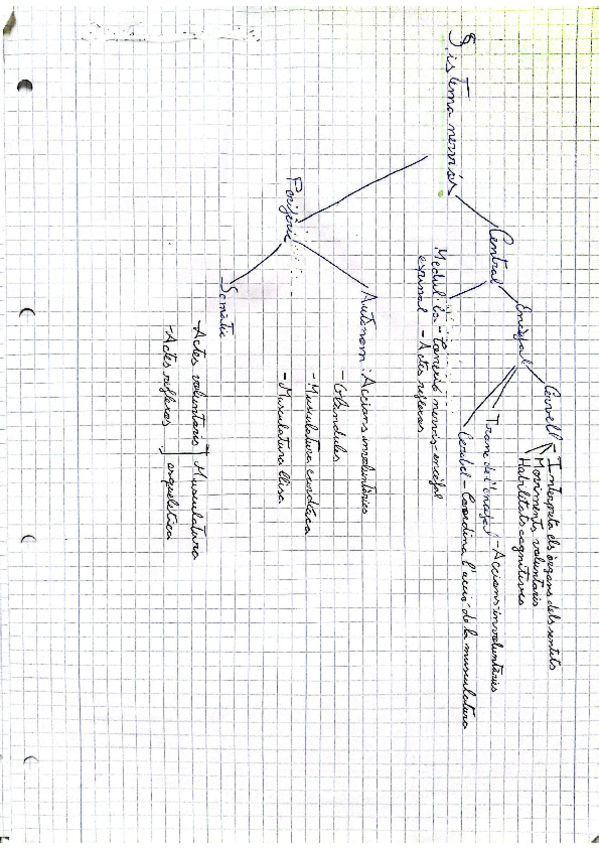 Sistema nerviós
Central
Encèfal
Cervell
Interpreta els òrgans dels sentits
Moviments voluntaris
Habilitats cognitives
Tronc de l'encèfal - Accions involuntàries
Cerebel - Coordina l'acció de la musculatura
Medul·la - Connexió nervis-encèfal
espinal - Actes reflexes
Perifèric
Autònom: Accions involuntàries
- Glàndules
- Musculatura cardíaca
- Musculatura llisa
Somàtic
- Actes voluntaris Musculatura
- Actes reflexos esquelètica